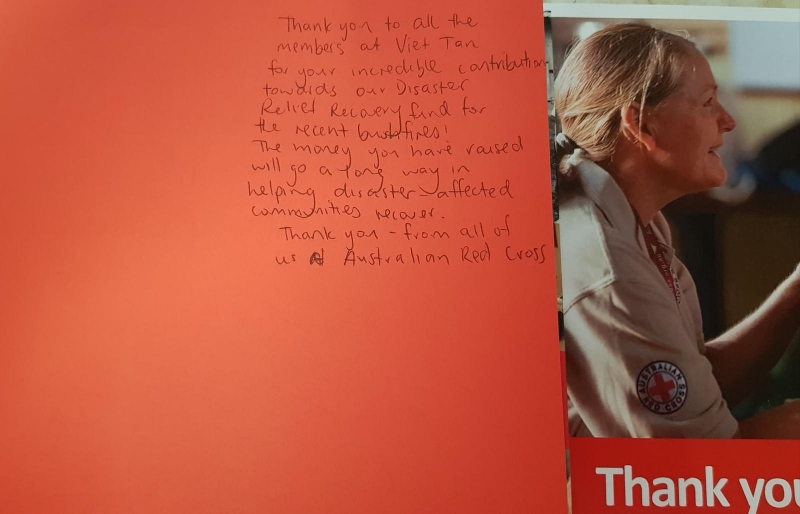 Thank you to all the
members at Viet Tan
for your incredible contribution
towards our Disaster
Relief Recovery fund for
the recent bushfires!
The money you have raised
will go a long way in
helping disaster-affected
communities recover.
Thank you - from all of
us at Australian Red Cross
AUSTRALIAN
RED CROSS
Thank you